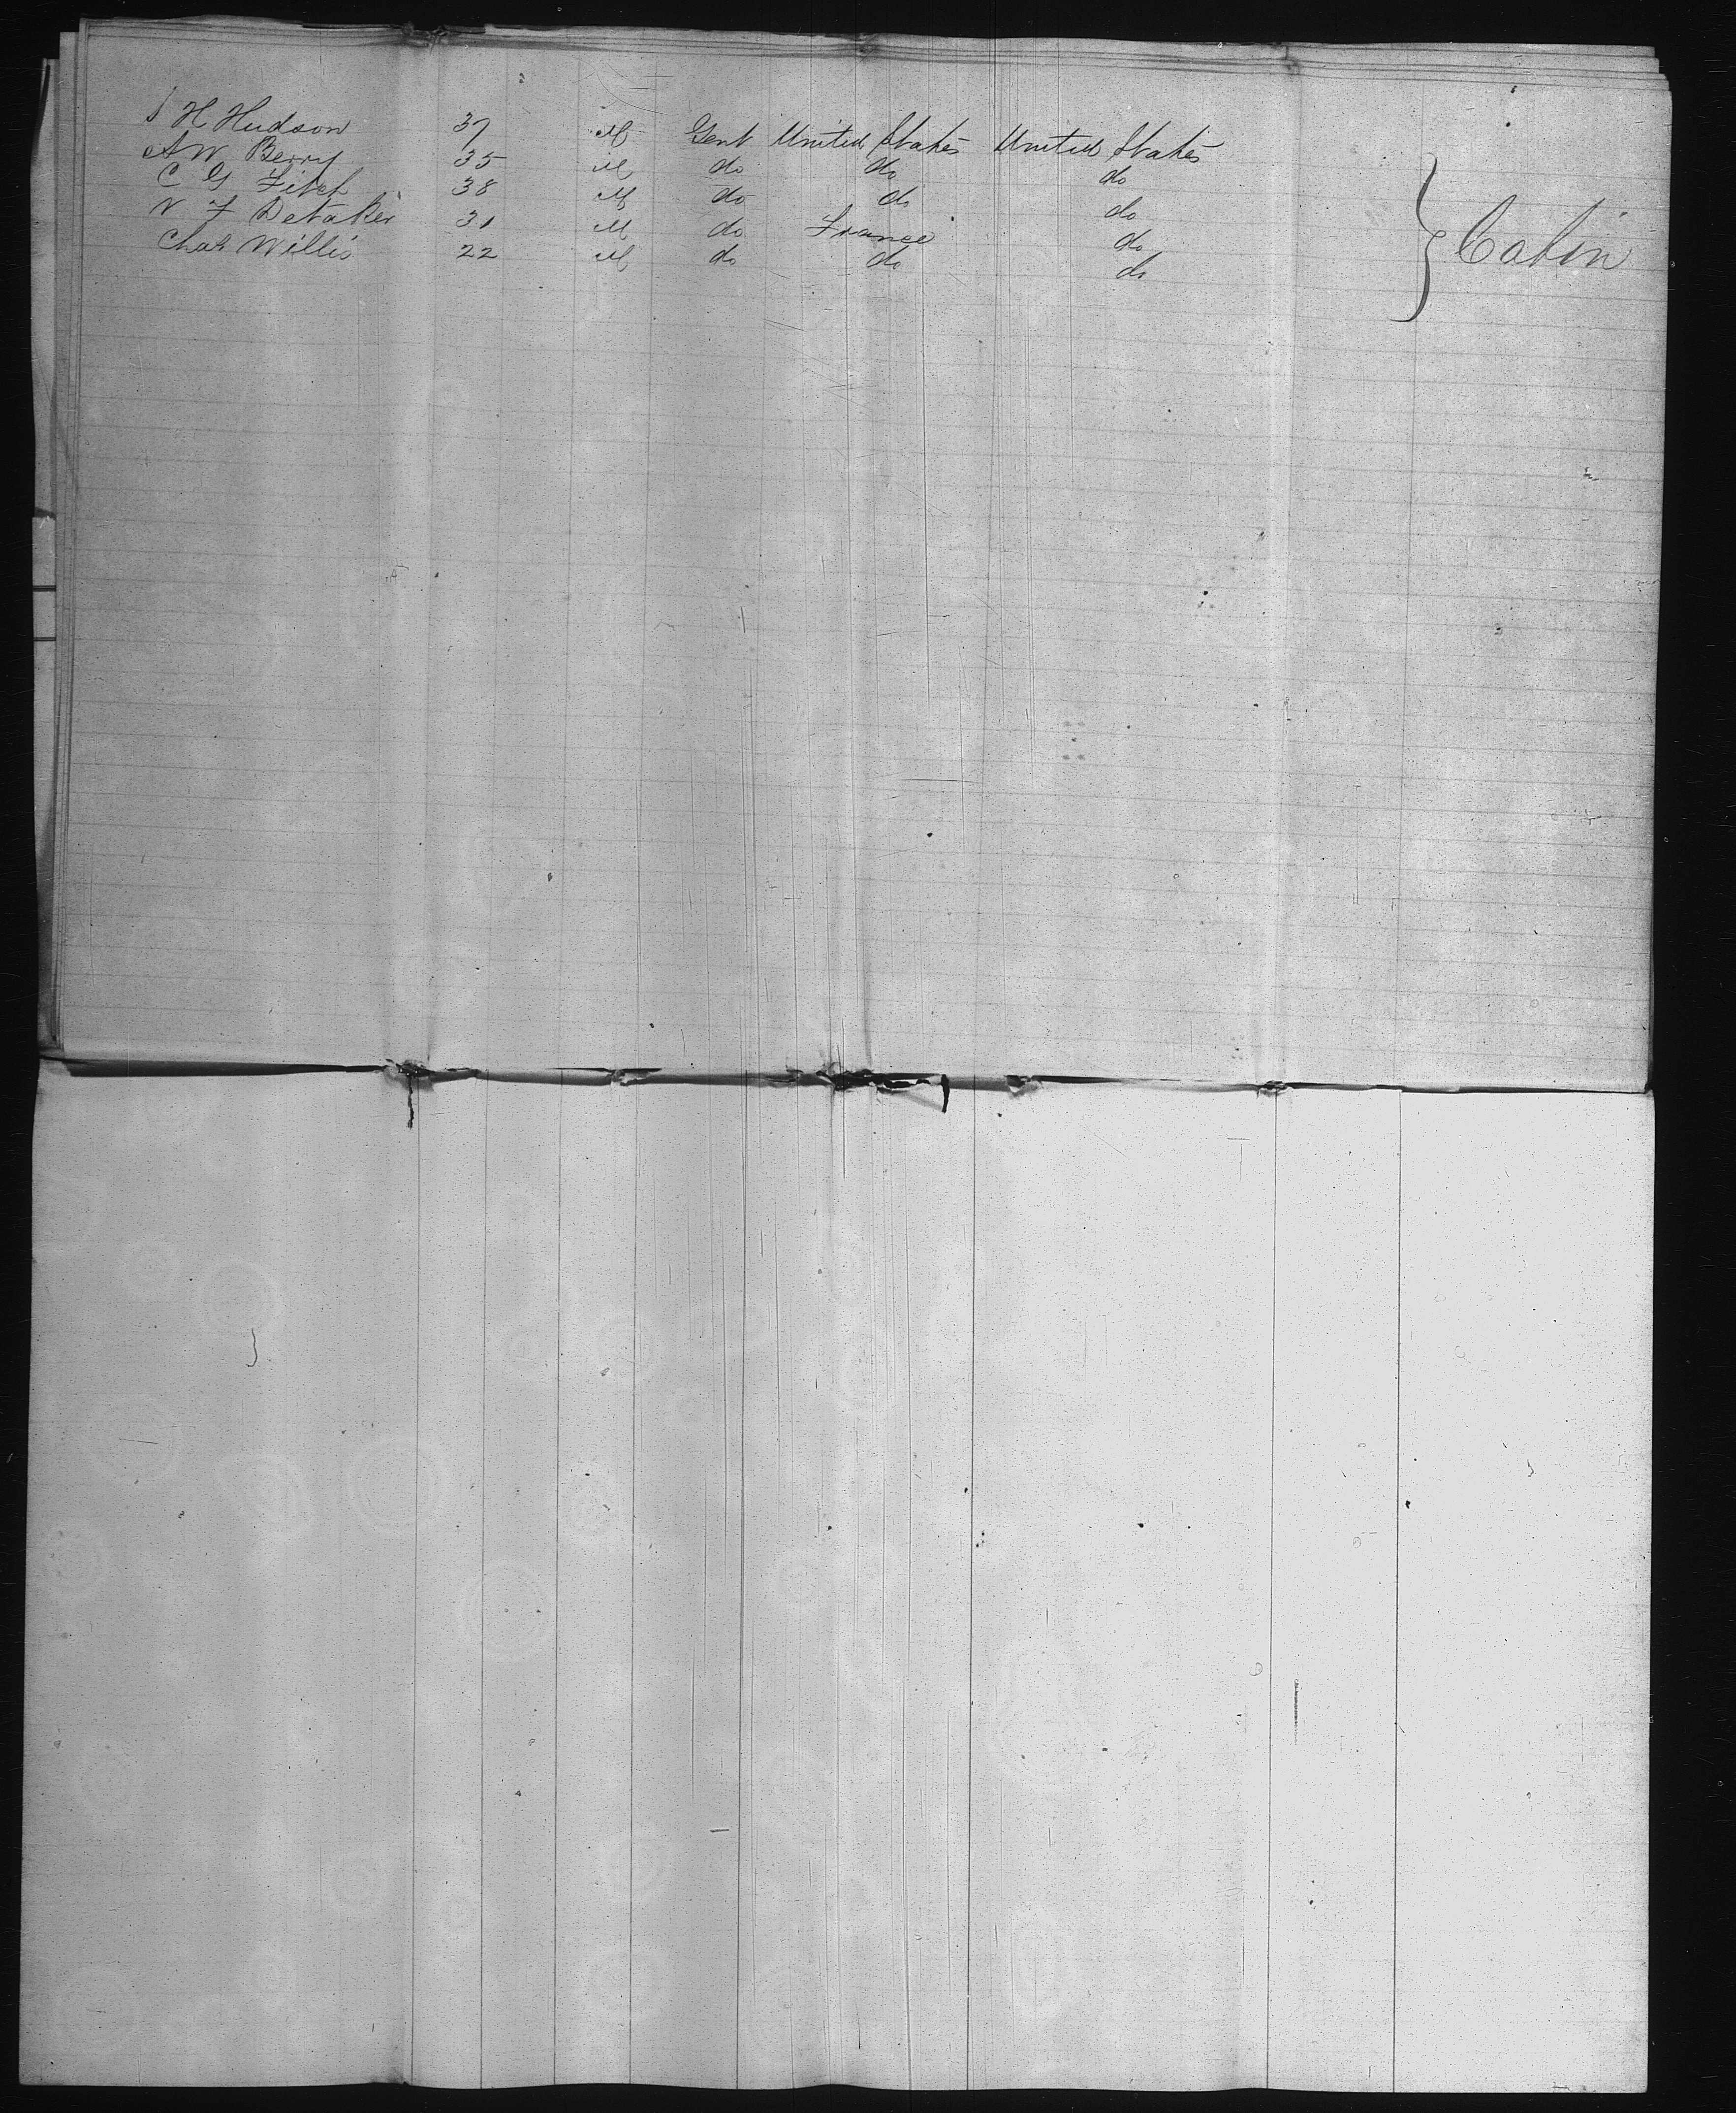 J H Hudson 37 M Gent United States United States
A W Berry 35 M do do do
C G Fitch 38 M do do do
V F Detaker 31 M do France do
Chas Willis 22 M do do do
Cabin